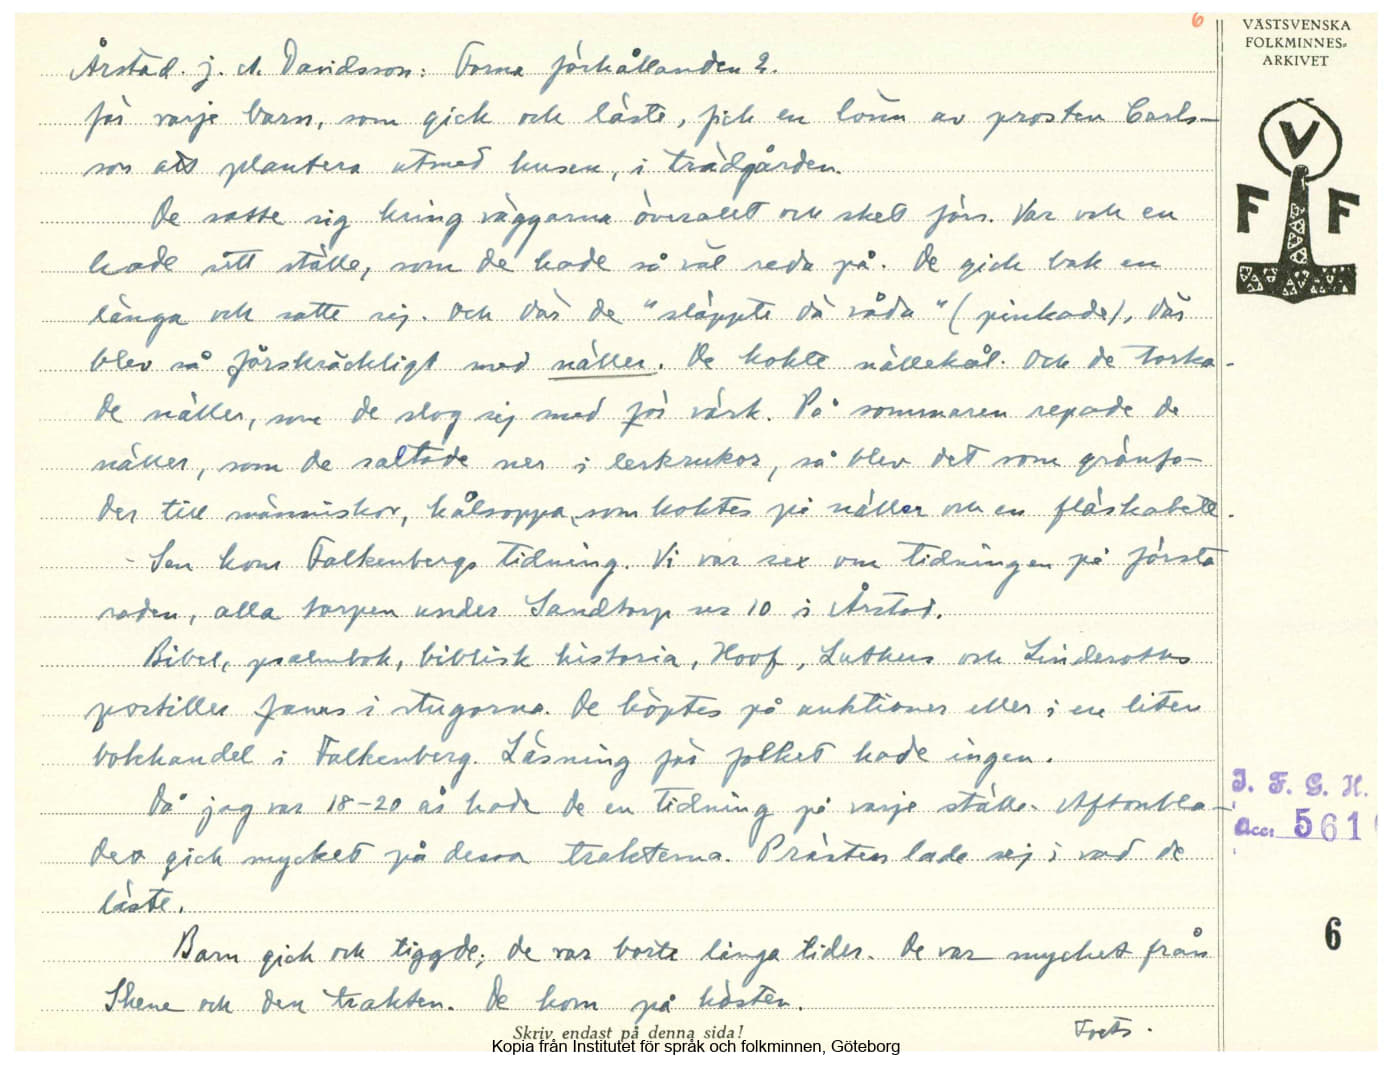 6
VÄSTSVENSKA
FOLKMINNES-
ARKIVET
V
F F
Årstad. J. A. Davidsson: Forna förhållanden 2.
för varje barn, som gick och läste, fick en lönn av prosten Carls-
son att plantera utmed husen, i trädgården.
De satte sig kring väggarna överallt och sket förr. Var och en
hade sitt ställe, som de hade så väl reda på. De gick bak en
länga och satte sej. Och där de "släppte dä våda" (pinkade), där
blev så förskräckligt med näller. De kokte nällekål. Och de torka-
de näller, som de slog sig med för värk. På sommaren repade de
näller, som de saltade ner i lerkrukor, så blev det som grönfo-
der till människor, kålsoppa, som koktes på näller och en fläskabete.
- Sen kom Falkenbergs tidning. Vi var sex om tidningen på första
raden, alla torpen under Sandtorp nr 10 i Årstad.
Bibel, psalmbok, biblisk historia, Hoof, Luthers och Linderoths
postiller fanns i stugorna. De köptes på auktioner eller i en liten
bokhandel i Falkenberg. Läsning för folket hade ingen.
Då jag var 18-20 år hade de en tidning på varje ställe. Aftonbla-
det gick mycket på dessa trakterna. Prästen lade sej i vad de
läste.
Barn gick och tiggde; de var borte långa tider. De var mycket från
Skene och den trakten. De kom på hösten.
Forts.
I. F. G. H.
Acc. 561
6
Skriv endast på denna sida!
Kopia från Institutet för språk och folkminnen, Göteborg